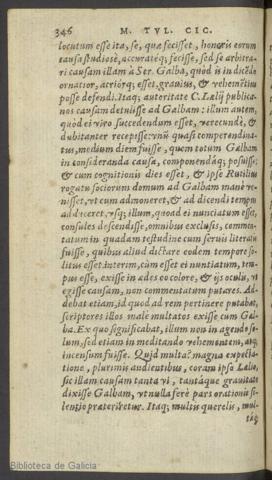 346 M. TVL. CIC.
locutum esse ita, se, quæ fecisset, honoris eorum
causa studiosè, accuratéq; fecisse, sed se arbitra-
ri causam illam à Ser. Galba, quòd is in dicẽdo
ornatior, acriórq; esset, grauius, & vehemẽtius
posse defendi. Itaq; autoritate C. Lælij publica-
nos causam detulisse ad Galbam: illum autem,
quòd ei viro succedendum esset, verecundè, &
dubitanter recepisse: vnũ quasi comperendina-
tus, medium diem fuisse, quem totum Galbam
in consideranda causa, componendáq; posuisse:
& cum cognitionis dies esset, & ipse Rutilius
rogatu sociorum domum ad Galbam manè ve-
nisset, vt eum admoneret, & ad dicendi tempus
adduceret, vsq; illum, quoad ei nunciatum esset,
consules descendisse, omnibus exclusis, commen-
tatum in quadam testudine cum seruis literatis
fuisse, quibus aliud dictare eodem tempore so-
litus esset. interim, cùm esset ei nuntiatum, tem-
pus esse, exisse in ædes eo colore, & ijs oculis, vt
egisse causam, non commentatum putares. Ad-
debat etiam, id quod ad rem pertinere putabat,
scriptores illos malè multatos exisse cum Gal-
ba. Ex quo significabat, illum non in agendo so-
lum, sed etiam in meditando vehementem, atq;
incensum fuisse. Quid multa? magna expecta-
tione, plurimis audientibus, coram ipso Lælio,
sic illam causam tanta vi, tantáque grauitate
dixisse Galbam, vt nulla ferè pars orationis si-
lentio præteriretur. Itaq; multis querelis, mul-
táq;
Biblioteca de Galicia